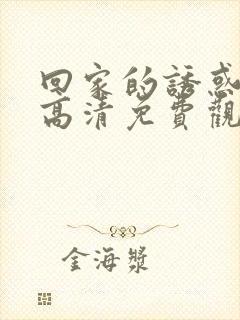 回家的誘惑
高清免費觀
金海漿